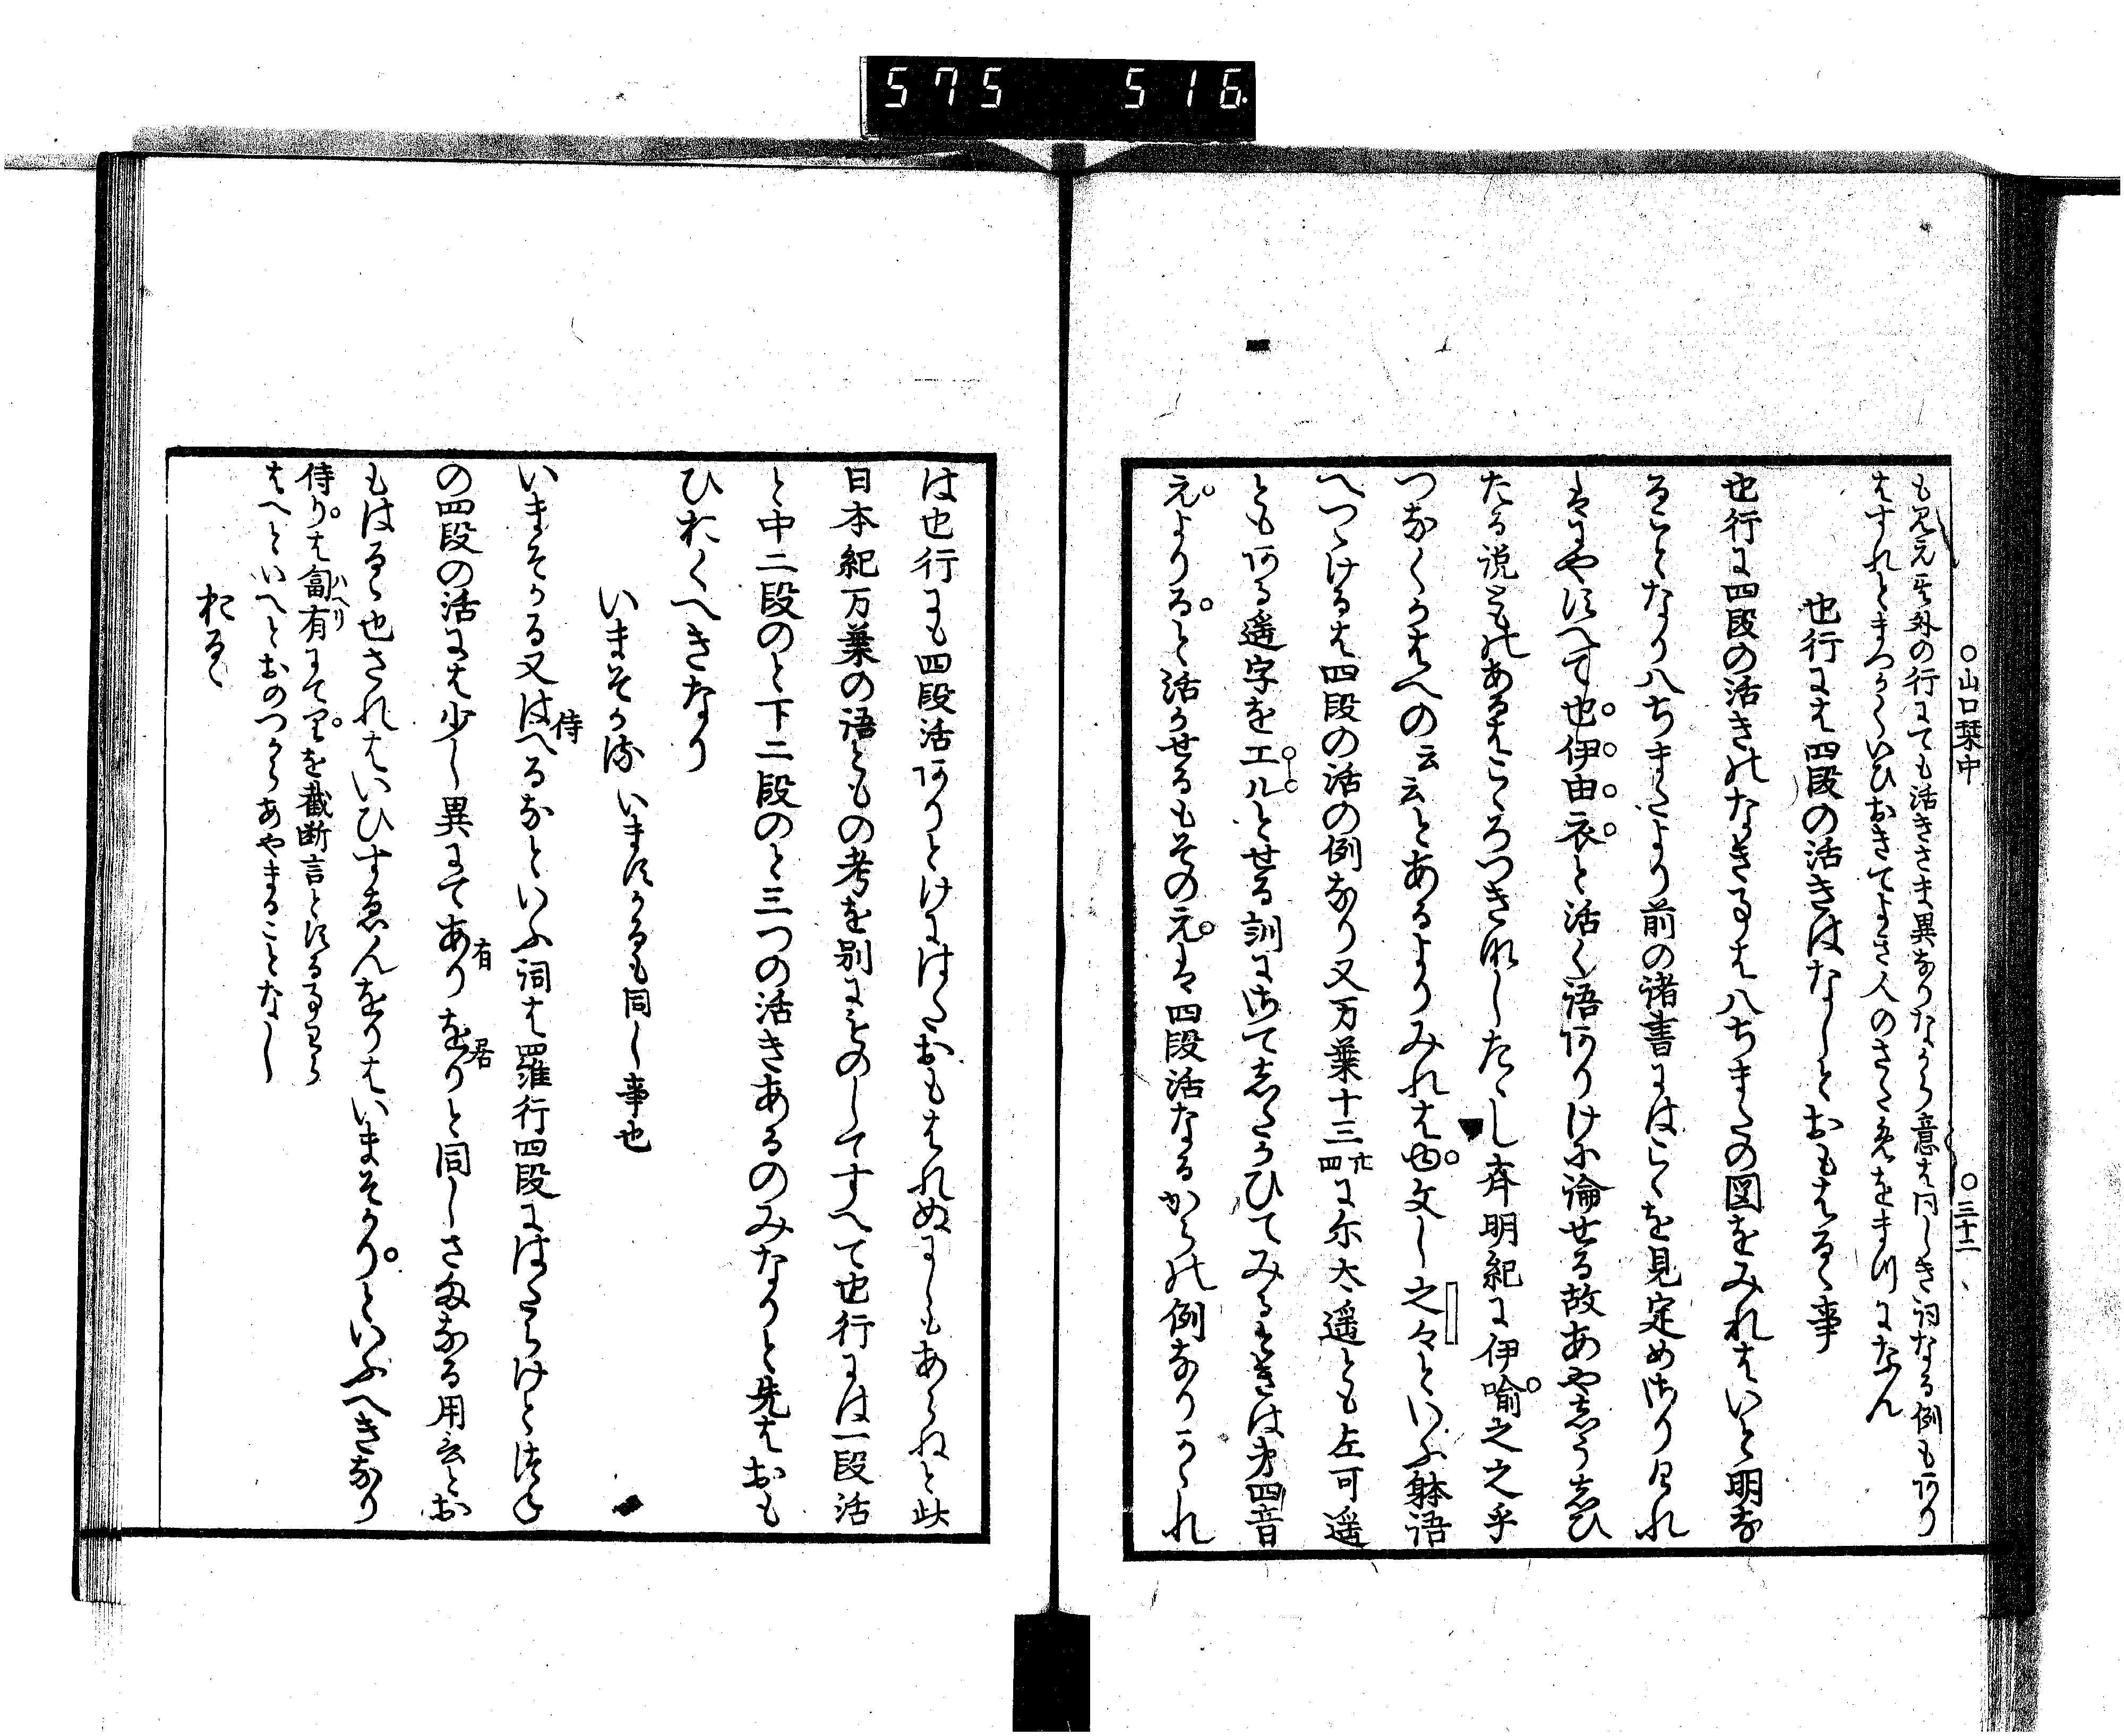 575 516.
○山口栞中 ○三十二
も见え其外の行にても活きさま異なりなから意は同しき詞なる例もあり
はすれとまつかくいひおきてよき人のさためをまつになん
也行には四段の活きはなしとおもはるゝ事
也行に四段の活きのなき事は八ちまたの図をみれはいと明な
ることなり八ちまたより前の諸書にはこを見定めさりけれ
はにやすへて也伊由衣と活く語ありけに論せる故あやしうしひ
たる説とものあるはこゝろつきなしたゝし斉明紀に伊喩之之乎
つなくかはへの云云とあるよりみれは由文し之々といふ躰語
へつゝけるは四段の活の例なり又万葉十三十四に尓太遥とも左可遥
ともある遥字をエルとせる訓にさてしたかひてみるときは第四音
元よりると活かせるもその元は四段活なるからの例なりかゝれ
は也行にも四段活ありとけにはたおもはれぬにしもあらねと此
日本紀万葉の語ともの考を別にものしてすへて也行には一段活
と中二段のと下二段のと三つの活きあるのみなりと先はおも
ひおくへきなり
いまそかり いますかるも同し事也
いまそかる又はへるなといふ詞は羅行四段にはたらけとつね
侍
の四段の活には少し異にてありをりと同しさまなる用言とお
有 居
もはるゝ也されはいひすゑんをりはいまそかりといふへきなり
侍りは畗有にてりを截断言とする事しるゝ
はへり
はへといへとおのつからあやまることなし
おるゝ